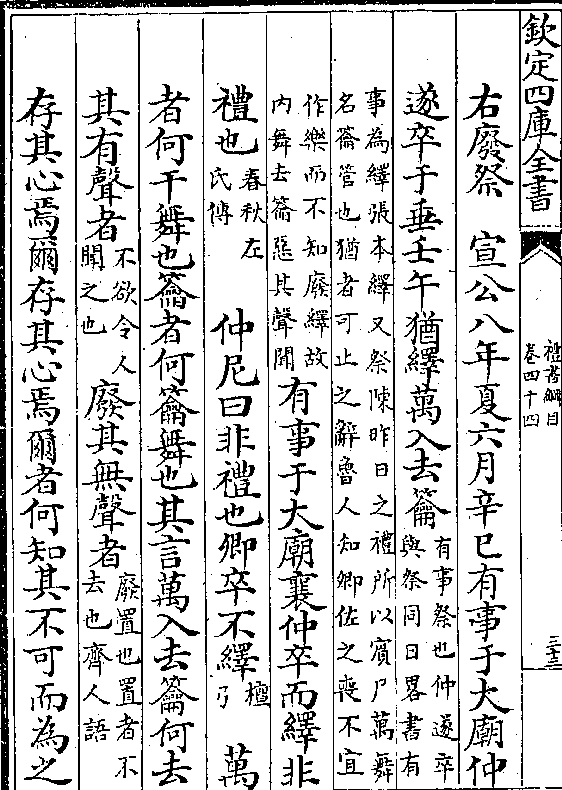 欽定四庫全書
禮書綱目
卷四十四
三十三
右廢祭　宣公八年夏六月辛巳有事于大廟仲
遂卒于垂壬午猶繹萬入去籥有事祭也仲遂卒與祭同日畧書有
事為繹張本繹又祭陳昨日之禮所以賓尸萬舞
名籥管也猶者可止之辭魯人知卿佐之喪不宜
作樂而不知廢繹故內舞去籥惡其聲聞有事于大廟襄仲卒而繹非
禮也春秋左氏傳　仲尼曰非禮也卿卒不繹檀弓　萬
者何干舞也籥者何籥舞也其言萬入去籥何去
其有聲者不欲令人聞之也廢其無聲者廢置也置者不去也齊人語
存其心焉爾存其心焉爾者何知其不可而為之